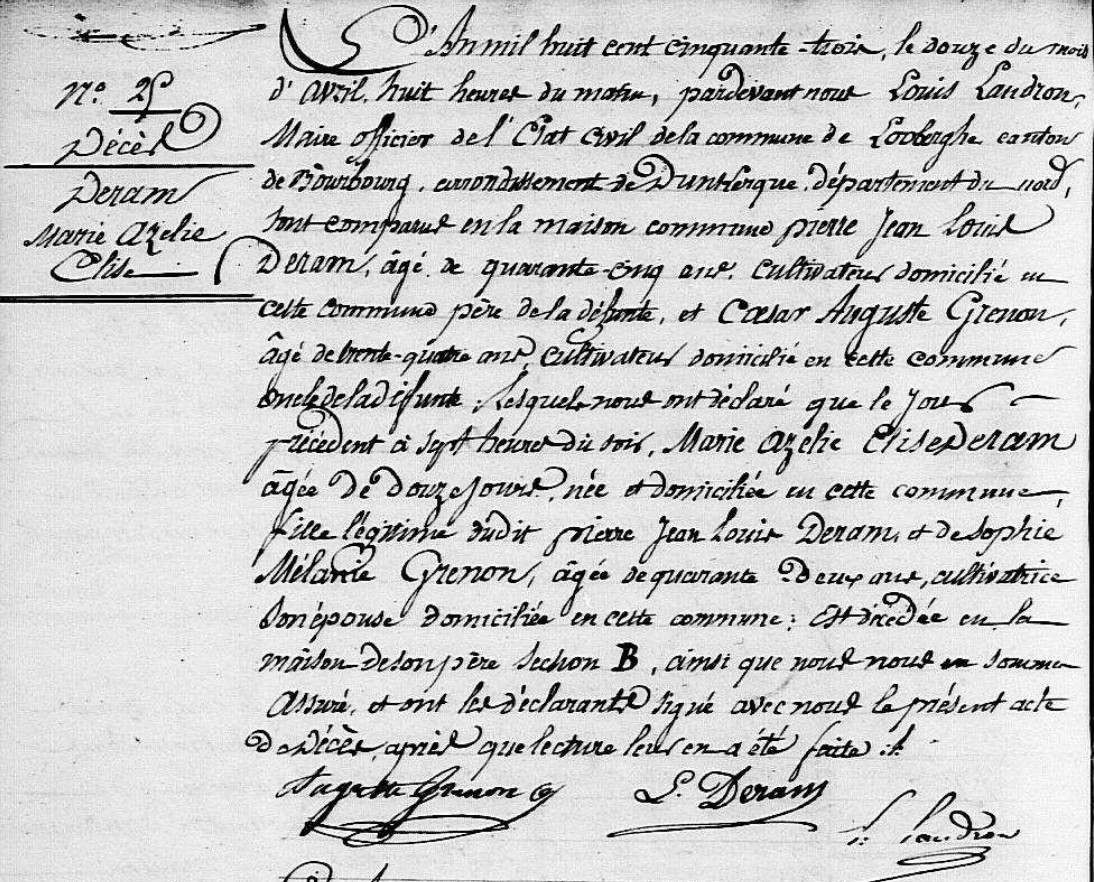 N.º 25
Décès
Deram
Marie Azelie
Elise
L'An mil huit cent cinquante-trois, le douze du mois
d'avril, huit heures du matin, pardevant nous Louis Landron,
Maire officier de l'Etat Civil de la commune de Looberghe canton
de Bourbourg, arrondissement de Dunkerque, département du nord,
sont comparus en la maison commune pierre Jean Louis
Deram, âgé de quarante-cinq ans, cultivateur domicilié en
cette commune père de la défunte, et Cæsar Auguste Grenon,
âgé de trente-quatre ans, cultivateur domicilié en cette commune
oncle de la défunte ; lesquels nous ont déclaré que le jour
précédent à sept heures du soir, Marie Azelie Elise Deram
âgée de douze jours, née et domiciliée en cette commune,
fille légitime dudit pierre Jean Louis Deram, et de Sophie
Mélanie Grenon, âgée de quarante deux ans, cultivatrice
son épouse domiciliée en cette commune ; est décédée en la
maison de son père section B, ainsi que nous nous en sommes
assuré, et ont les déclarants signé avec nous le présent acte
de Décès, après que lecture leur en a été faite.
Auguste Grenon
L. Deram
L. Landron